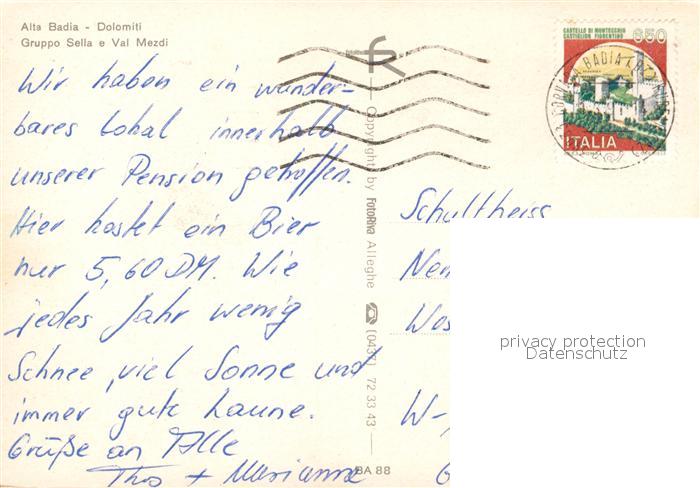 Alta Badia - Dolomiti
Gruppo Sella e Val Mezdi
Wir haben ein wunder-
bares Lokal innerhalb
unserer Pension getroffen.
Hier kostet ein Bier
nur 5,60 DM. Wie
jedes Jahr wenig
Schnee, viel Sonne und
immer gute Laune.
Grüße an Alle
Thos + Marianne
Copyright by FotoRiva Alleghe
72 33 43
BA 88
CASTELLO DI MONTECCHIO
CASTIGLION FIORENTINO
650
ITALIA
BADIA
Schultheiss
W-
privacy protection
Datenschutz